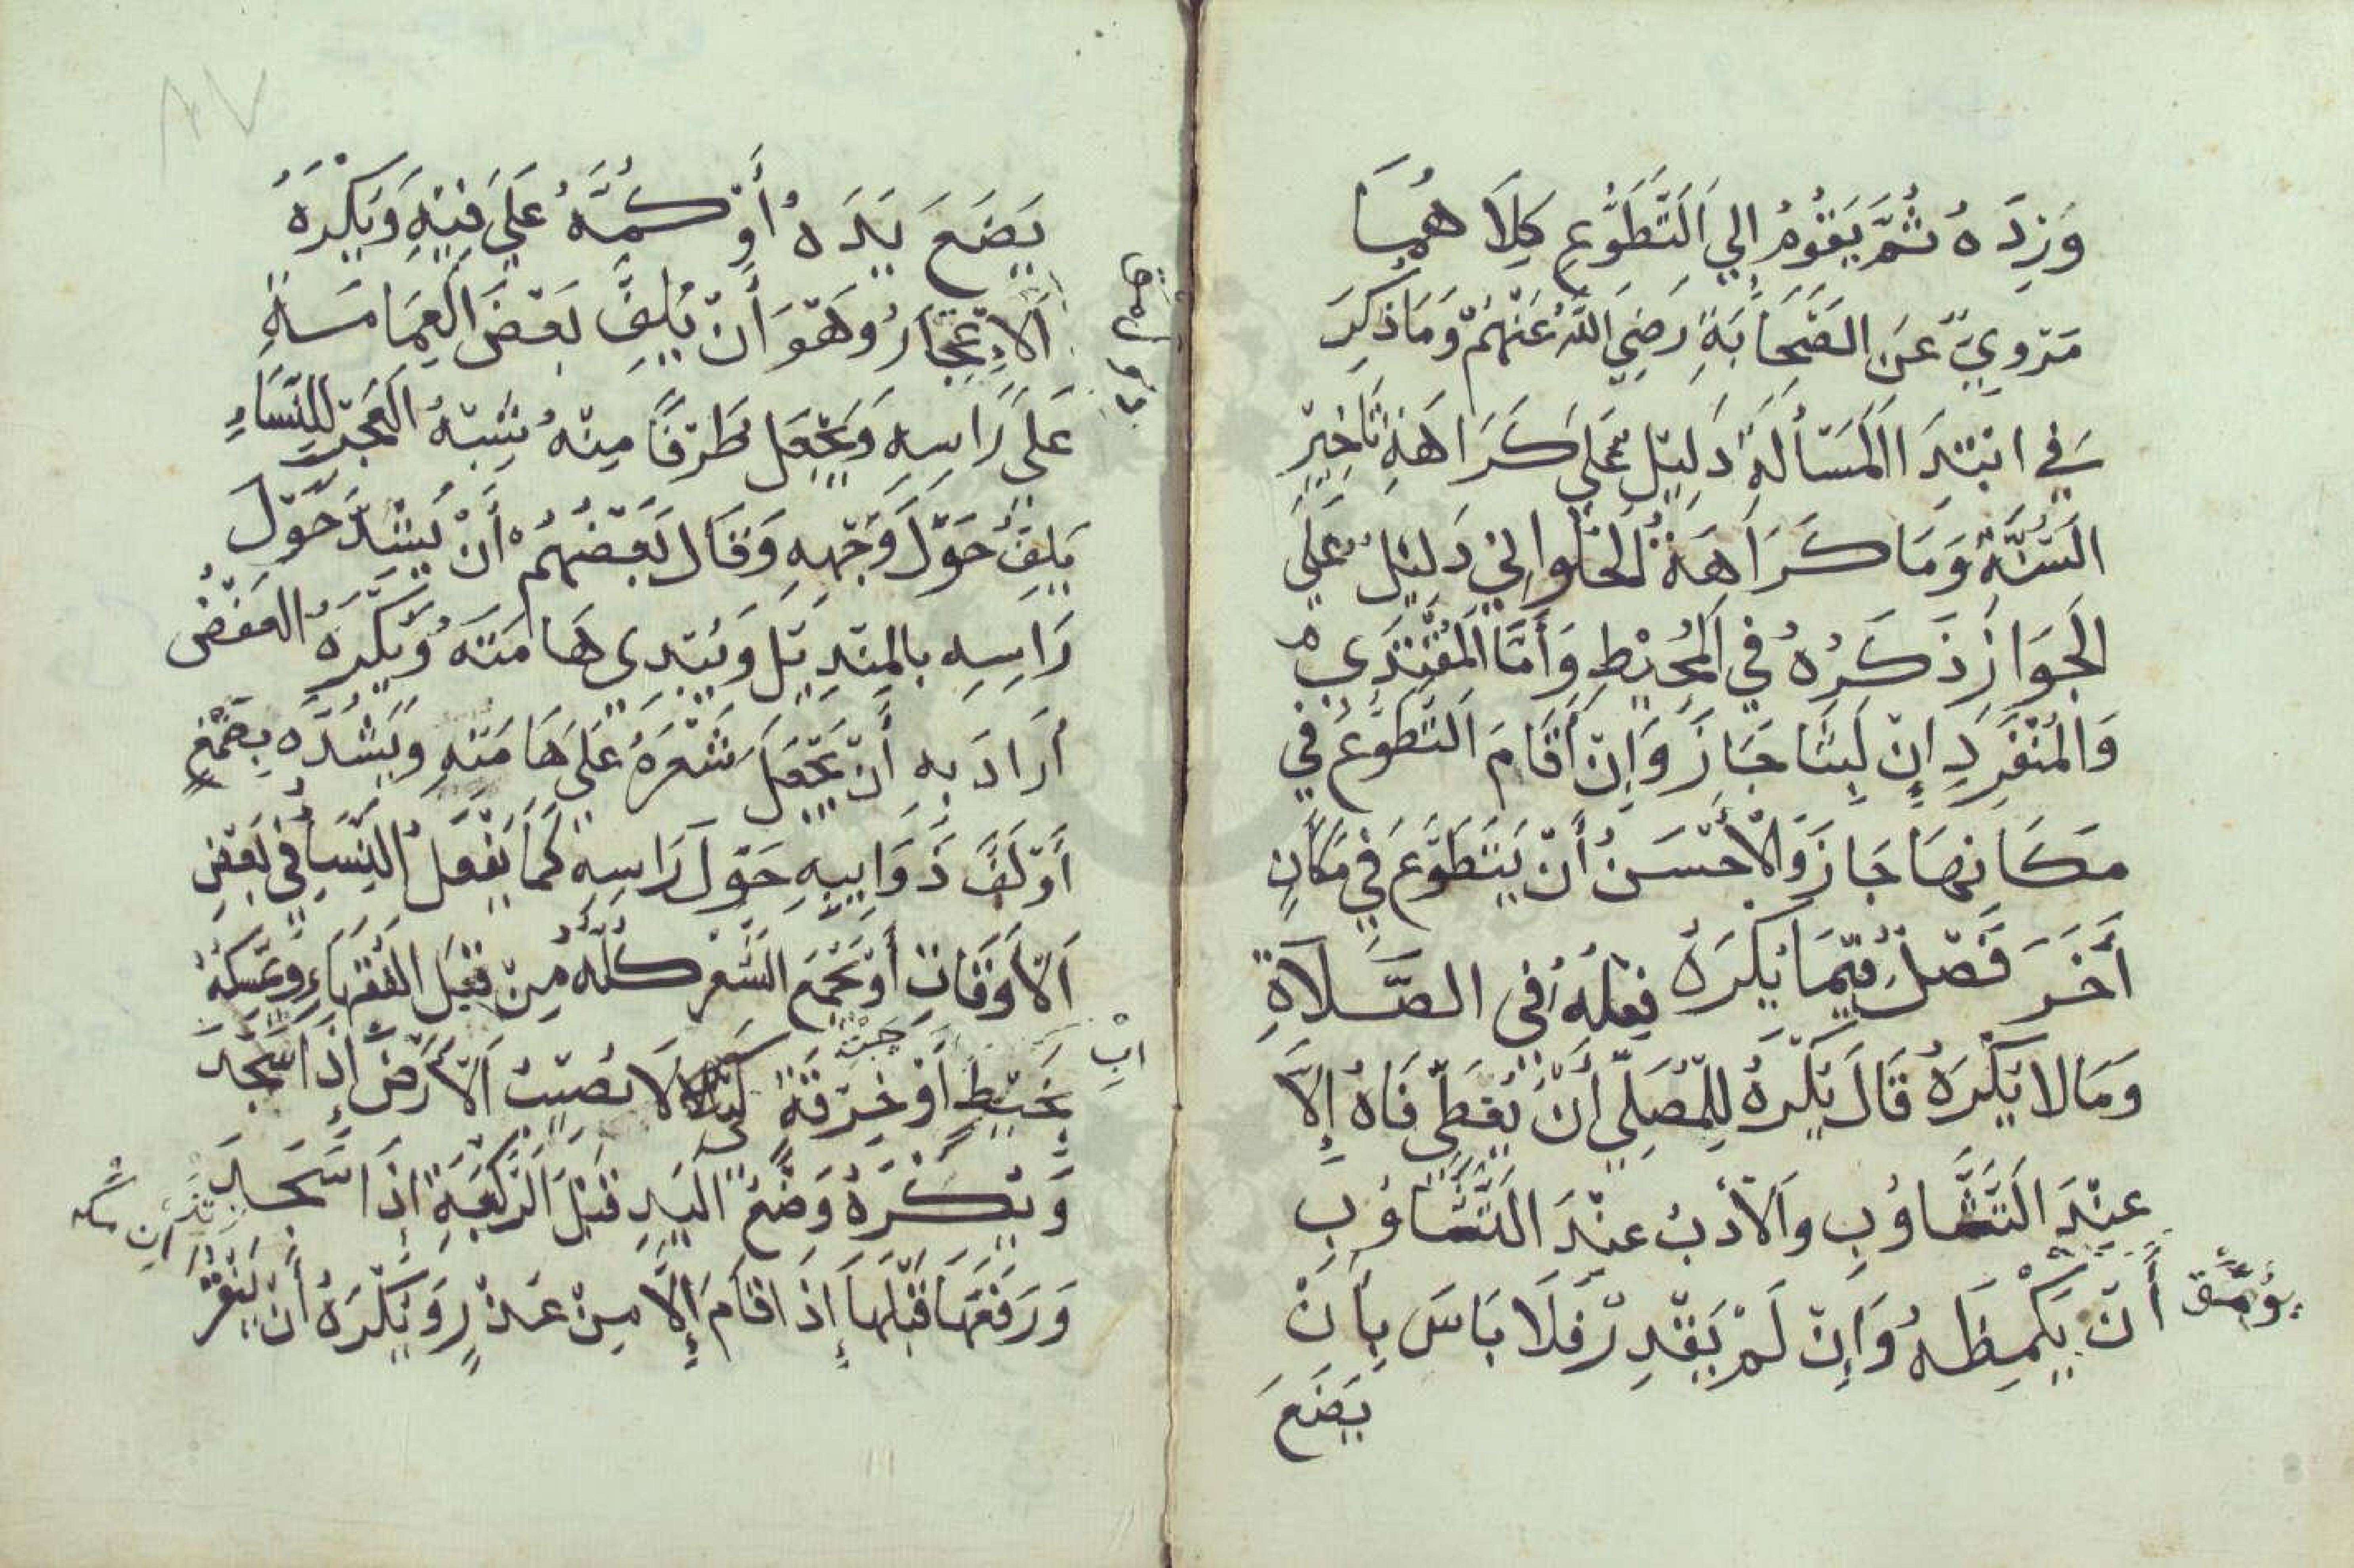 وَرِدَهُ ثُمَّ يَقُوْمُ إِلَي اَلتَّطَوُّعِ كِلَا هُمَا
مَرْوِيٌّ عَنِ الصَّحَابَةِ رَضِيَ اللَّهُ عَنْهُمْ وَمَا ذُكِرَ
فِي ابْتِدَا الْمَسْأَلَةِ دَلِيْلٌ عَلَي كَرَاهَةِ تَأخِيْرِ
السُّنَّةِ وَمَا كَرَاهَةُ الْحَلْوانِي دَلِيْلٌ عَلَي
الْجَوَازِ ذَكَرَهُ فِي الْمُحِيْطِ وَأَمَّا الْمُقْتَدِي
وَالْمُنْفَرِدِ اِنْ لَبِثَا جَازَ وَاِنْ اَقَامَ التَّطَوُّعَ فِي
مَكَانِهَا جَازَ وَالْأَحْسَنُ أَنْ يَتَطَوَّعَ فِي مَكَانٍ
أَخَرَ فَصْلٌ فِيْمَا يُكْرَهُ فِعْلُهُ فِي الصَّلَاةِ
وَمَا لَا يُكْرَهُ قَالَ يُكْرَهُ لِلْمُصَلِّي أَنْ يُغَطِّي فَاهُ إِلَّا
عِنْدَ التَّثَاوُبِ وَالْأَدبُ عِنْدَ التَّثَاوُبِ
أَنْ يَكْمِظَهُ وَإِنْ لَمْ يَقْدِرْ فَلَا بَاسَ بِأَنْ
يَضَعَ
يَضَعَ يَدَهُ أَوْ كُمَّهُ عَلَي فِيْهِ وَيُكْرَهُ
اَلْاِعْتِجَارُ وَهْوَ أَنْ يَلِفَّ بَعْضَ الْعِمَامَةِ
عَلَي رَاسِهِ وَيَجْعَل طَرَفًا مِنْهُ شِبْهُ الْمِعْجَرِ لِلنِّسَاءِ
يَلِفُّ حَوْلَ وَجْهِهِ وَقَالَ بَعْضُهُمْ أَنْ يَشِدَّ حَوْلَ
رَاسِهِ بِالْمِنْدِيْلِ وَيُبْدِي هَامَتَهُ وَيُكْرَهُ الْعَقْصُ
أَرَادَ بِهِ أَنْ يَجْعَلَ شَعْرَهُ عَلَي هَامَتِهِ وَيَشُدَّهُ بِصَمْغٍ
أَوْ لَفَّ ذَوَايِبِهِ حَوْلَ رَاسِهِ كَمَا يَفْعَلُ النِّسَا فِي بَعْضِ
اَلْأَوْقَاتِ أَوْ يَجْمَعَ الشَّعْرَ كُلَّهُ مِنْ قِبَلِ الْقَفَا وَيُمْسِكَهُ
بِخَيْطٍ أَوْ خِرْقَةٍ كَيْلَا تُصِيْبَ الْأَرْضَ إِذَا سَجَدَ
وَيُكْرَهُ وَضْعُ الْيَدِ قَبْلَ الرُّكْبَةِ إِذَا سَجَدَ
وَرَفْعَهَا قَبْلَهَا إِذَا قَامَ إِلَّا مِنْ عُذْرٍ وَيُكْرَهُ أَنْ يَنْقُرَ